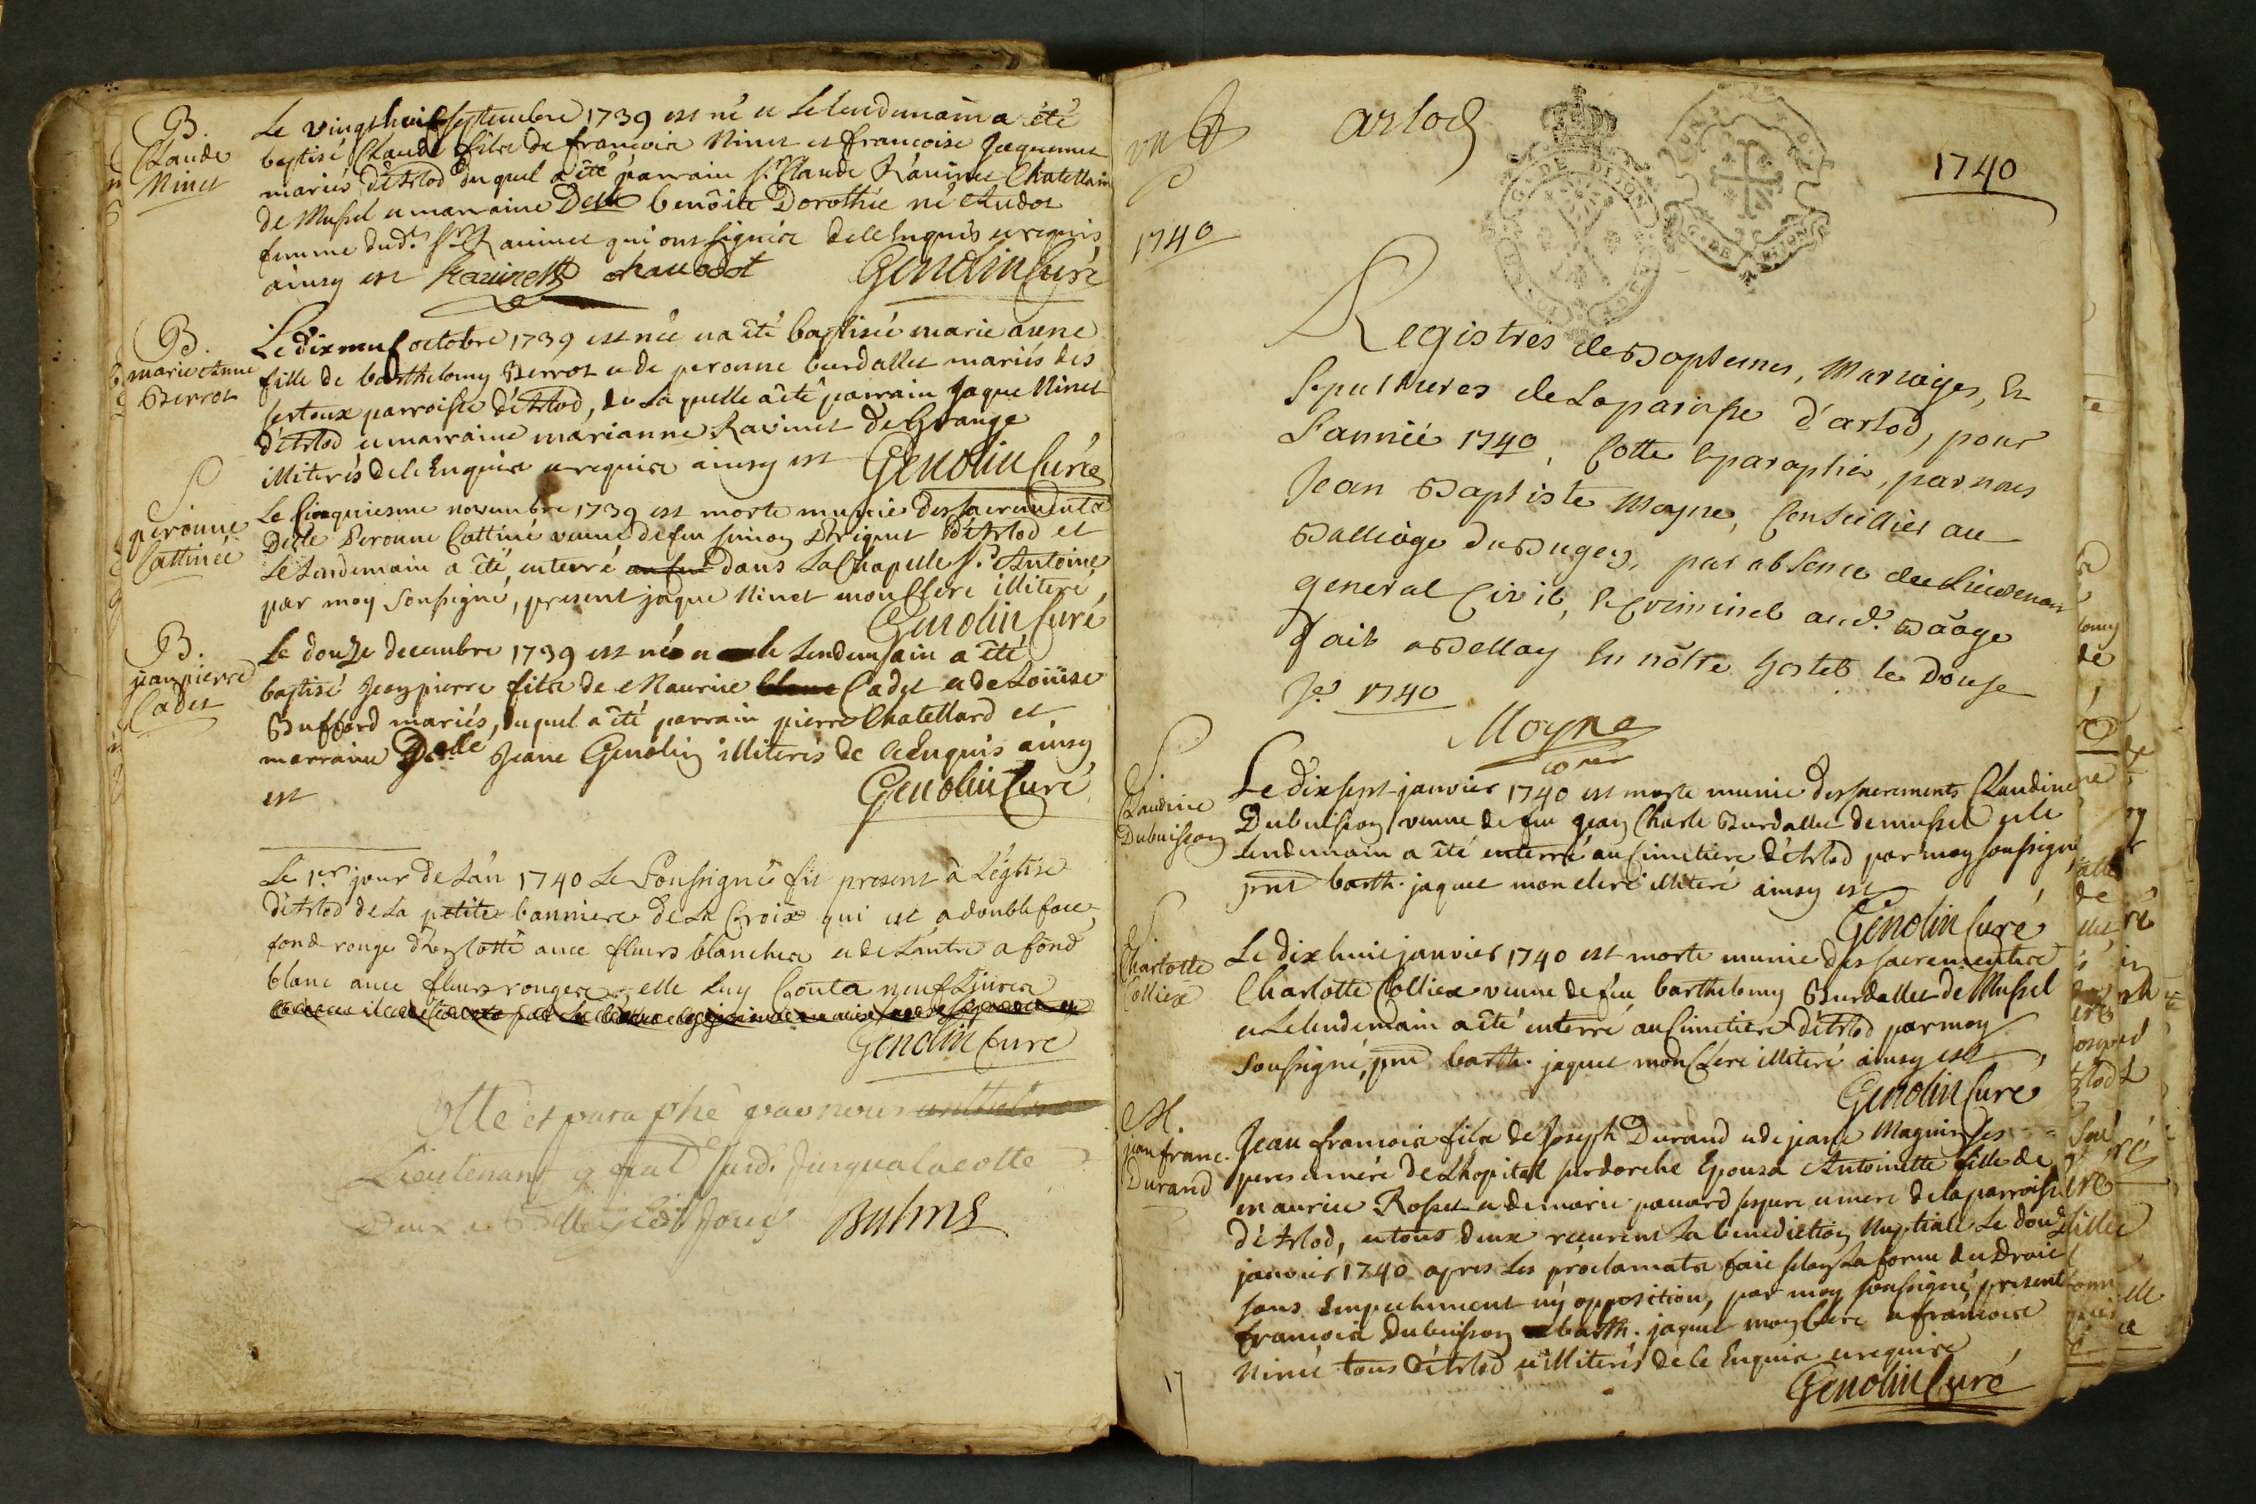 B.
Claude
Ninet
Le vingt huit septembre 1739 est né et le lendemain a été
baptisé Claude fils de francois Ninet et francoise Jaquemet
mariés d'Arlod duquel a été parrain sr. Claude Ravinet Chatellain
de Mussel et marraine Delle benoite Dorothée né Audot
femme dudt. sr. Ravinet qui ont signés de ce Enquis et requis
ainsy est Ravinet chaudot Genolin Curé
B.
marie Anne
Berrot
Le dix neuf octobre 1739 est née et a été baptisée marie anne
fille de barthelemy Berrot et de peronne burdallet mariés des
serteux parroisse d'Arlod, de laquelle a été parrain Jaque Ninet
d'Arlod et marraine marianne Ravinet de Grange
illiterés de ce Enquis et requis ainsy est Genolin Curé
S
peronne
Cattinée
Le Cinquiesme novembre 1739 est morte munie des sacrements
Delle Peronne Cattiné veuve de feu simon Brignet d'Arlod et
Le Lendemain a été enterré dans La Chapelle st. Antoine
par moy soussigné, present jaque Ninet mon Clerc illiteré
Genolin Curé
B.
jean pierre
Cadet
Le douze decembre 1739 est né et le Lendemain a été
baptisé Jean pierre fils de Maurice Cadet et de Loüise
Buffard mariés, duquel a été parrain pierre Chatellard et
marraine Delle Jeane Genolin illiterés de ce Enquis ainsy
est Genolin Curé
Le 1er jour de L'an 1740 Le Soussigné fit present à L'église
d'Arlod de La petite banniere de La Croix qui est a double face,
fond rouge d'un costé avec fleurs blanches et de L'autre a fond
blanc avec fleurs rouges, elle Luy Couta neuf Livres
Genolin Curé
Cotte et paraphé par nous
Lieutenant gñal susd. Jusqua la cotte
Deux a Belley ledit Jour
1740
arlod
1740
Registres de Baptemes, Mariages, Et
Sepultures de La paroisse d'arlod, pour
L'année 1740, Cotte et paraphée, par nous
Jean Baptiste Moyne, Conseillier au
Balliage du Bugey, par absence du Lieutenant
general Civil, et Criminel aud. Bâage
fait a Belley En nôtre hostel le Douze
Jer 1740
Moyne
S.
Claudine
Dubuisson
Le dix sept janvier 1740 est morte munie des sacrements Claudine
Dubuisson veuve de feu Jean Charle Burdallet de mussel et le
lendemain a été enterré au Cimetiere d'Arlod par moy soussigné
pnt barth. jaquet mon clerc illiteré ainsy est
Genolin Curé
S
Charlotte
Colliex
Le dix huit janvier 1740 est morte munie des sacrements
Charlotte Colliex veuve de feu barthelemy Burdallet de Mussel
et Le lendemain a été enterré au Cimetiere d'Arlod par moy
soussigné, pnt barth. jaquet mon Clerc illiteré ainsy est
Genolin Curé
M.
jean franc.
Durand
Jean francois fils de Joseph Durand et de jeane Magnin ses
pere et mére de Lhopital surdorche Epousa Antoinette fille de
maurice Rosset et de marie pauard ses pere et mere de la parroisse
d'Arlod, et tous deux recurent La benediction Nuptiale Le douze
janvier 1740 apres les proclamats fait selon La forme du Droit
sans Empechement ny opposition, par moy soussigné, present
francois Dubuisson barth. jaquet mon Clerc et francois
Ninet tous d'Arlod et illiterés de ce Enquis et requis
Genolin Curé
17